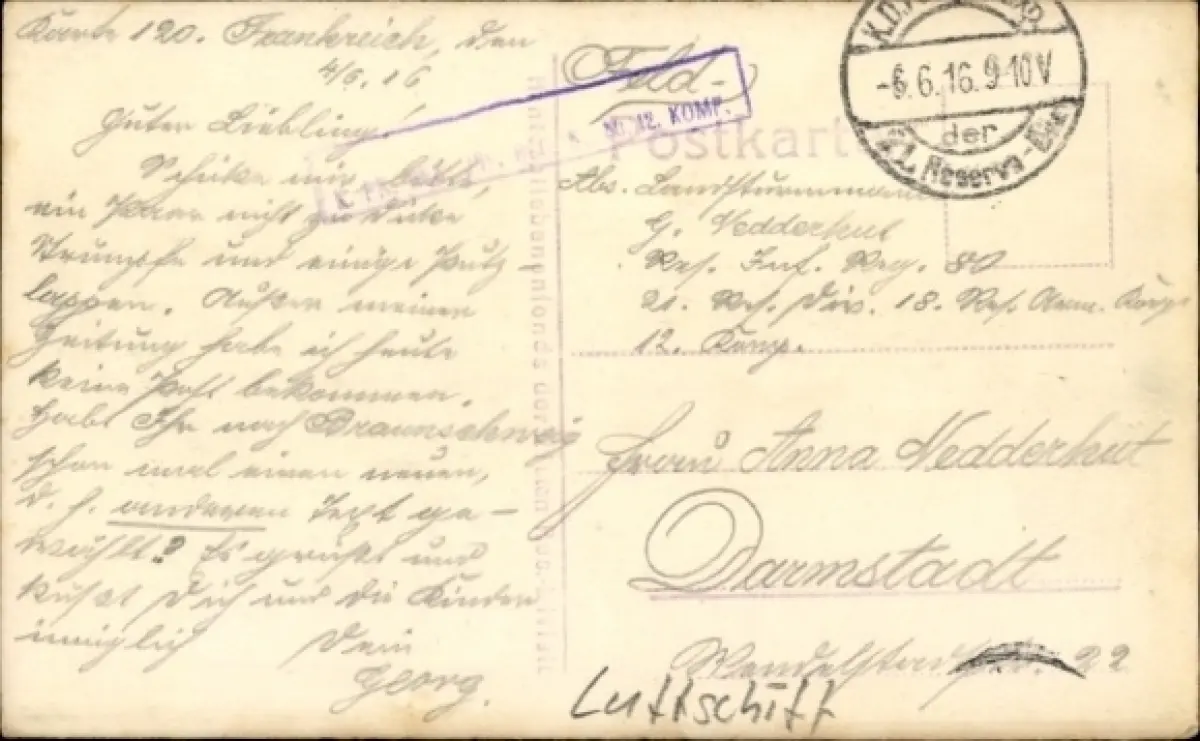 Karte 120. Frankreich, den
4/6. 16
Guter Liebling!
Schicke mir bitte,
ein Paar nicht zu dicke
Strümpfe und einige Putz-
lappen. Außer meiner
Zeitung habe ich heute
keine Post bekommen.
Habt Ihr nach Braunschweig
schon mal einen neuen,
d. h. anderen Text ge-
wählt? Es grüßt und
küßt Dich und die Kinder
inniglich Dein
Georg.
Feld-
Postkarte
KOMP.
-6.6.16.9-10V
der
21. Reserve-Div.
Abs. Landsturmmann
G. Vedderhut
Res. Inf. Reg. 80
21. Res. Div. 18. Res. Arm. Korps
12. Komp.
Frau Anna Vedderhut
Darmstadt
22
Luftschiff